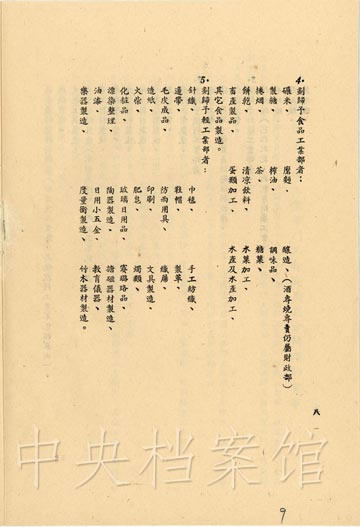 4. 劃歸予食品工業部者：
碾米、 磨麵、 釀造、（酒專燒專賣仍屬財政部）
製糖、 榨油、 調味品、
捲烟、 茶、 糖菓、
餅乾、 清凉飲料、 水菓加工、
畜產製品、 蛋類加工、 水產及水產加工、
其它食品製造。
5. 劃歸予輕工業部者：
針織、 手工紡織、
邊帶、 鞋帽、 製革、
毛皮成品、 防雨用具、 織蓆、
造紙、 印刷、 文具製造、
火柴、 肥皂、 燭類、
化粧品、 玻璃日用品、 賽璐珞品、
漂染整理、 陶器製造、 搪磁器材製造、
油漆、 日用小五金、 教育儀器、
樂器製造、 度量衡製造、 竹木器材製造。
八
中央档案馆
9